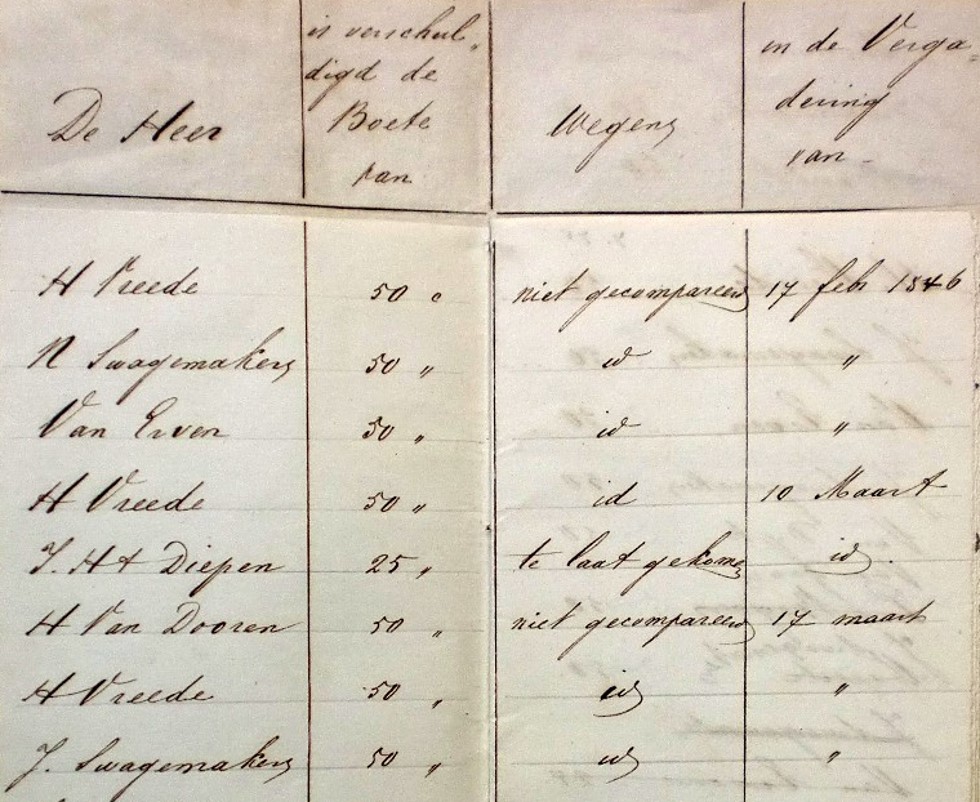 De Heer
is verschul„
digd de
Boete
van
Wegens
in de Verga„
dering
van –
H Vreede 50 c niet gecompareerd 17 febr 1846
N Swagemakers 50 „ id „
Van Erven 50 „ id „
H Vreede 50 „ id 10 Maart
J. Ht Diepen 25 „ te laat gekomen id.
H Van Dooren 50 „ niet gecompareerd 17 maart
H Vreede 50 „ id „
J. Swagemakers 50 „ id „